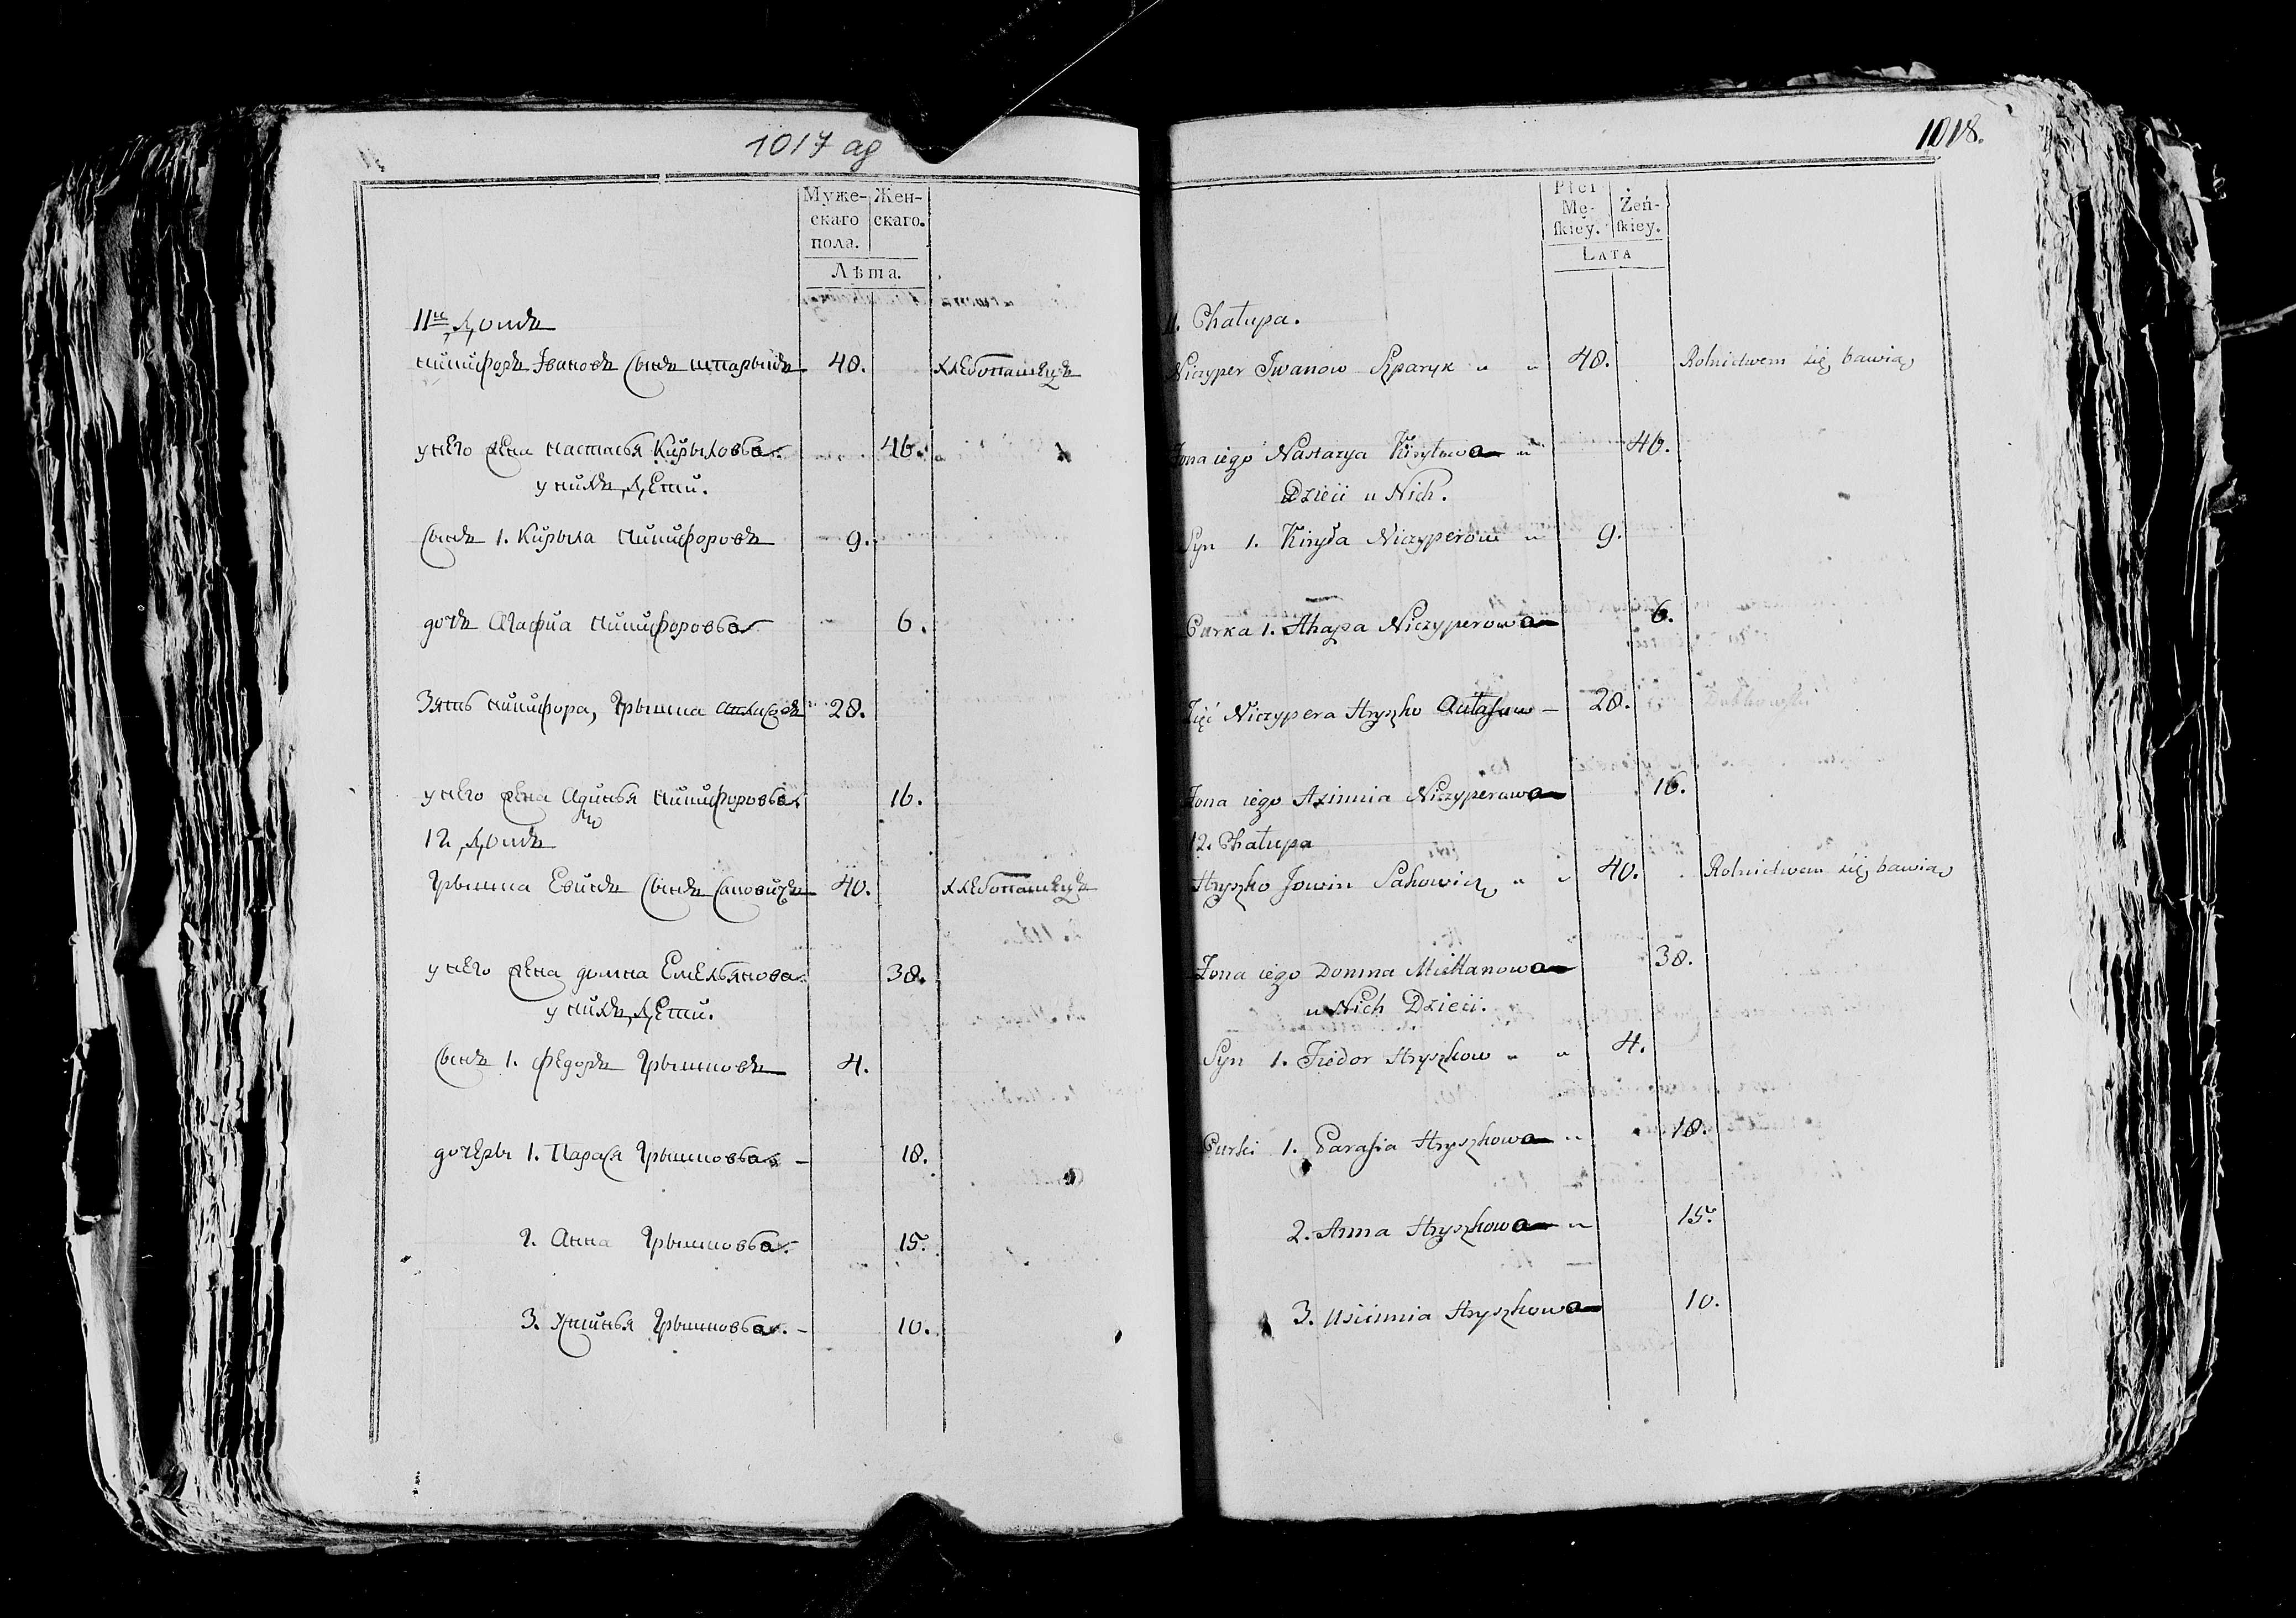 1017 ag
Муже-
скаго
пола.
Жен-
скаго.
Лѣта.
11й Домъ
Ничифоръ Івановъ Сынъ шпарыкъ 48. хлебопашецъ
у него жена настасья Кирылова 46.
у нихъ Дети.
Сынъ 1. Кирыла Ничифоровъ 9.
дочь Агафиа Ничифорова 6.
Зять Ничифора, Грышка 28.
у него жена Ничифорова 16.
12 Домъ
Грышка Евинъ Сынъ 40. хлебопашецъ
у него жена домна Емельянова 38.
у нихъ Дети.
Сынъ 1. Федоръ Грышковъ 4.
дочеры 1. Парася Грышкова 18.
2. Анна Грышкова 15.
3. Грышкова 10.
1018.
Płci
Mę-
skiey.
Żeń-
skiey.
LATA
11. Chałupa.
Niczyper Iwanow Szparyk 48. Rolnictwem się bawią
Żona iego Nastazya Kiryłowa 46.
Dzieci u Nich.
Syn 1. Kiryła Niczyperow 9.
Curka 1. Ahapa Niczyperowa 6.
Zięć Niczypera Hryszko 28.
Żona iego Axinnia Niczyperowa 16.
12. Chałupa
Hryszko Jowin Sakowicz 40. Rolnictwem się bawią
Żona iego Domna 38.
u Nich Dzieci.
Syn 1. Fiedor Hryszkow 4.
Curki 1. Parasia Hryszkowa 18.
2. Anna Hryszkowa 15.
3. Uscinnia Hryszkowa 10.